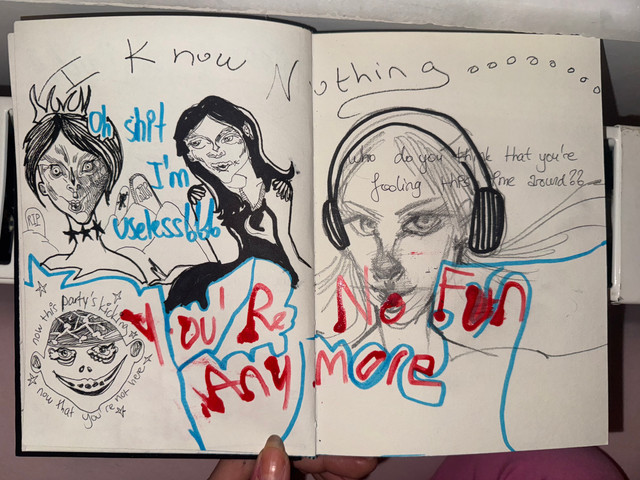 I Know Nothing........
Oh shit
I'm
useless!!!
RIP
who do you think that you're
fooling this time around!!
now this party's kicking
now that you're not here
You're No Fun
Anymore